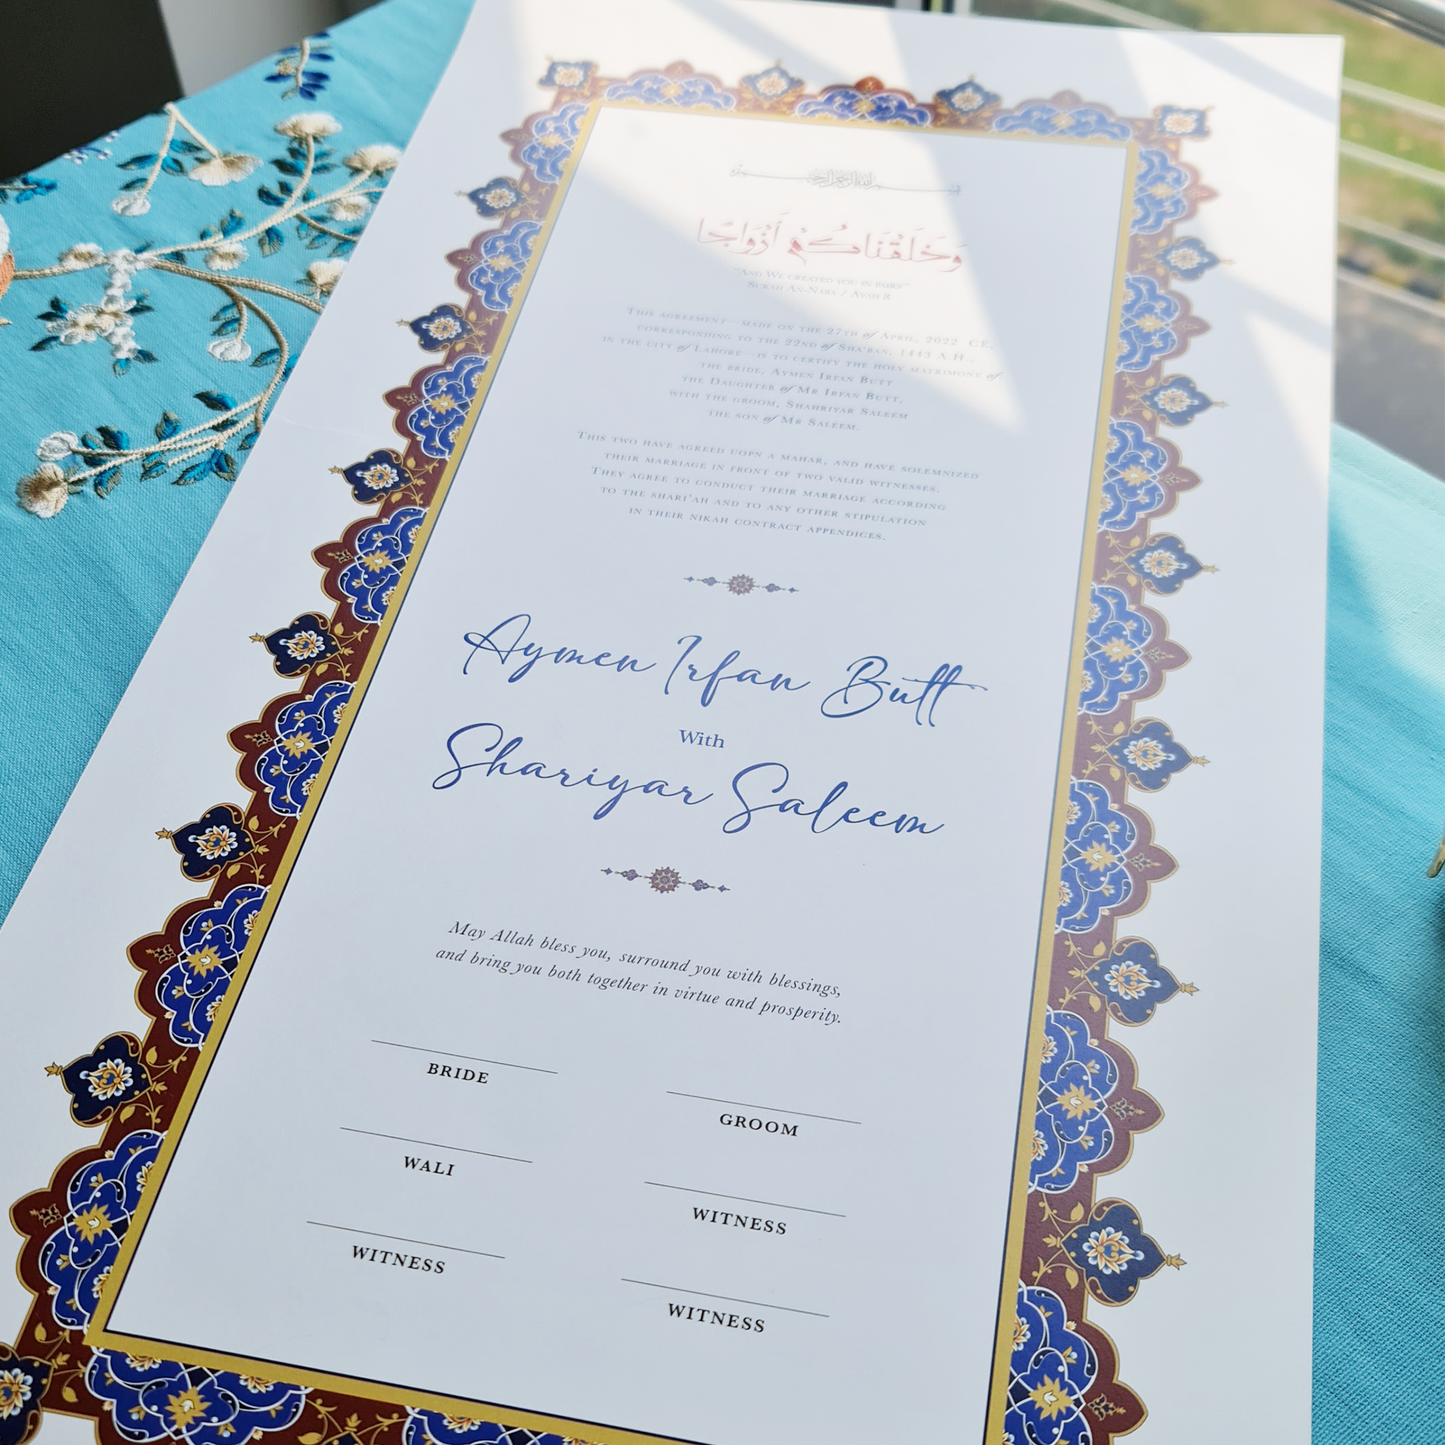 بسم الله الرحمن الرحيم
وَخَلَقْنَاكُمْ أَزْوَاجًا
"And We created you in pairs"
Surah An-Naba / Ayah 8
This agreement—made on the 27th of April, 2022 CE,
corresponding to the 22nd of Sha'ban, 1443 A.H.,
in the city of Lahore—is to certify the holy matrimony of
the bride, Aymen Irfan Butt
the Daughter of Mr Irfan Butt,
with the groom, Shahriyar Saleem
the son of Mr Saleem.
This two have agreed uopn a mahar, and have solemnized
their marriage in front of two valid witnesses.
They agree to conduct their marriage according
to the shari'ah and to any other stipulation
in their nikah contract appendices.
Aymen Irfan Butt
With
Shariyar Saleem
May Allah bless you, surround you with blessings,
and bring you both together in virtue and prosperity.
BRIDE
GROOM
WALI
WITNESS
WITNESS
WITNESS